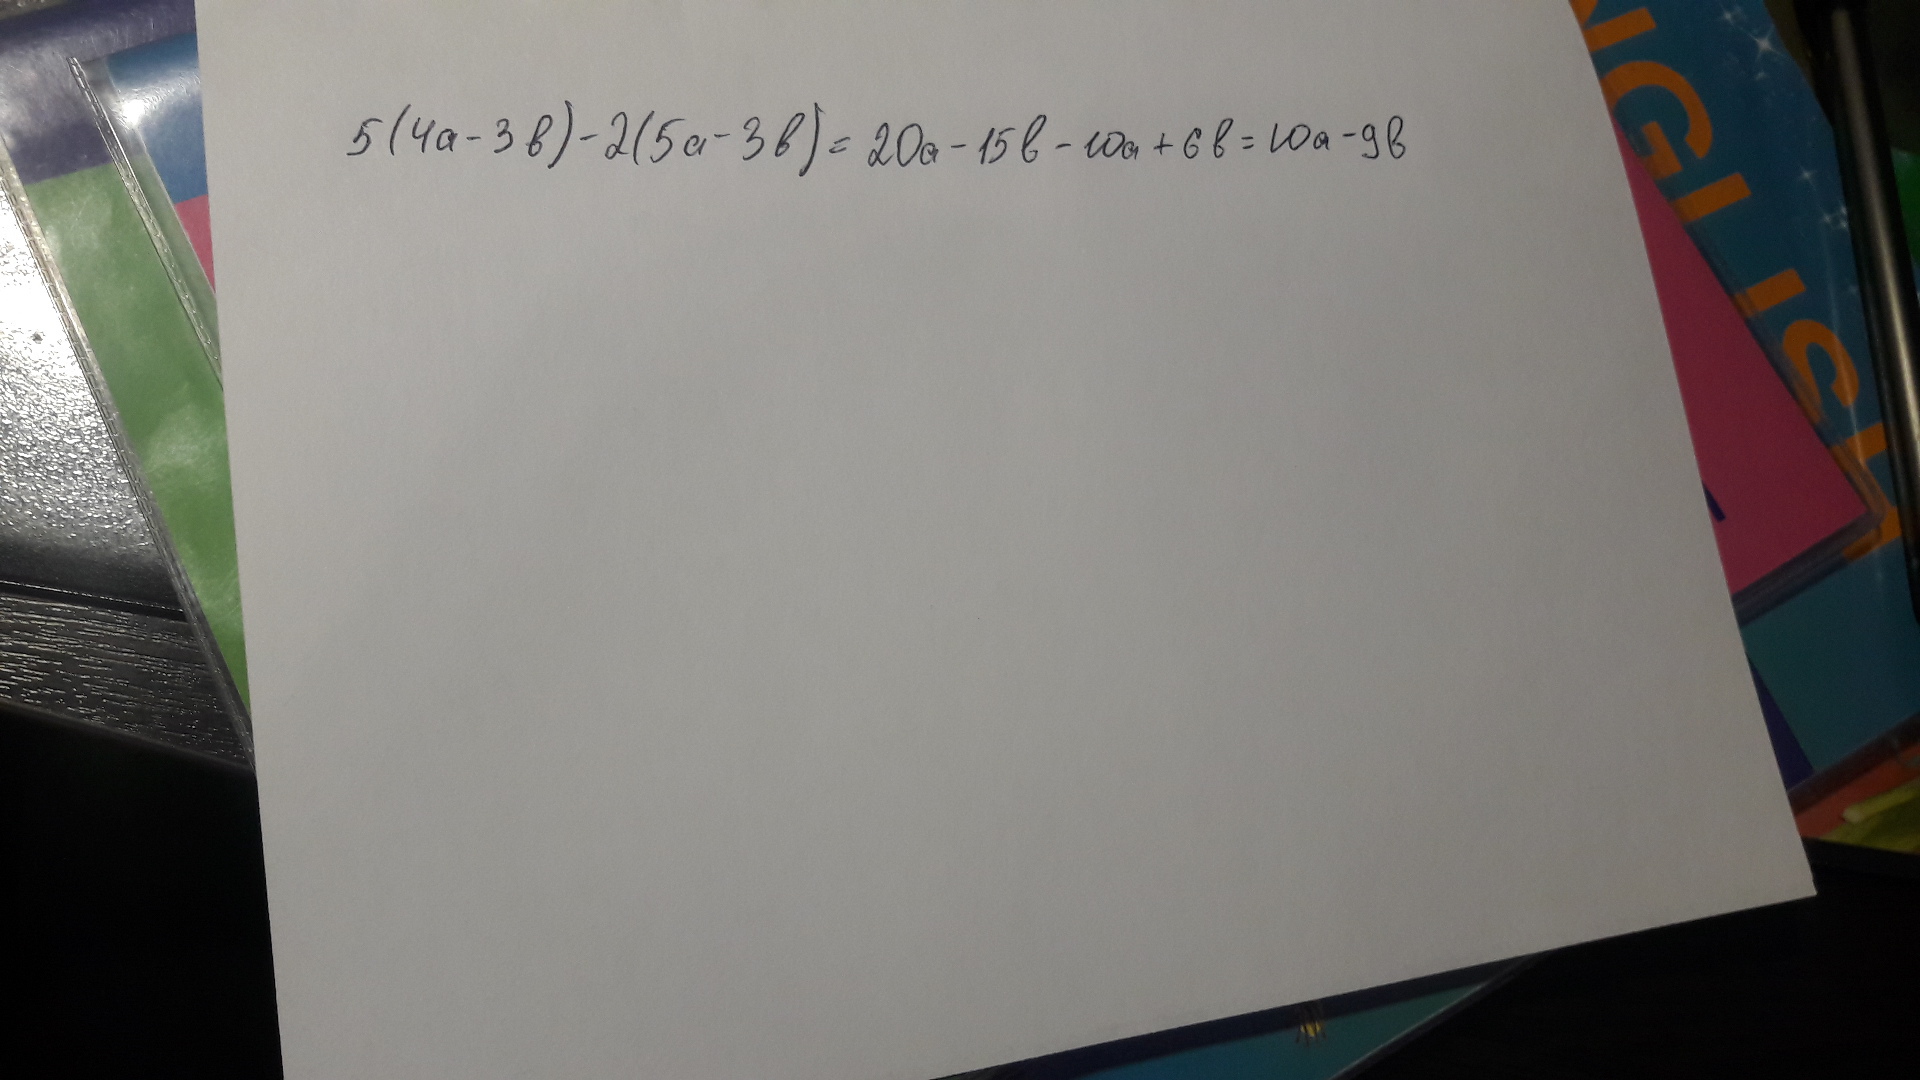 5(4a-3в)-2(5a-3в)=20a-15в-10a+6в=10a-9в
ENGLISH